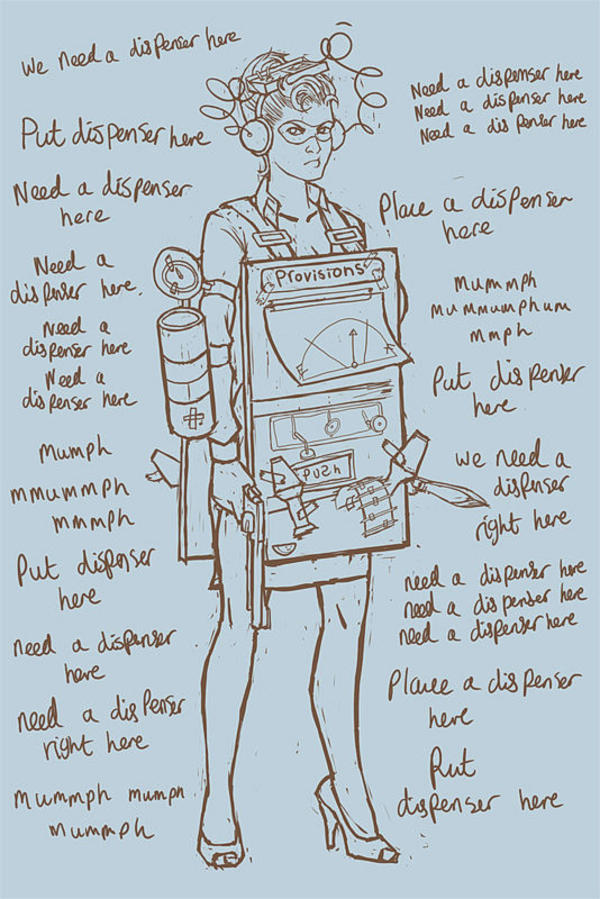 We need a dispenser here
Put dispenser here
Need a dispenser
here
Need a
dispenser here.
Need a
dispenser here
Need a
dispenser here
Mumph
mmummph
mmmph
Put dispenser
here
need a dispenser
here
need a dispenser
right here
Mummph mumph
Mummph
Provisions
E
PUSH
Need a dispenser here
Need a dispenser here
Need a dispenser here
Place a dispenser
here
Mummph
mummumphum
mmph
Put dispenser
here
we need a
dispenser
right here
need a dispenser here
need a dispenser here
need a dispenser here
Place a dispenser
here
Put
dispenser here